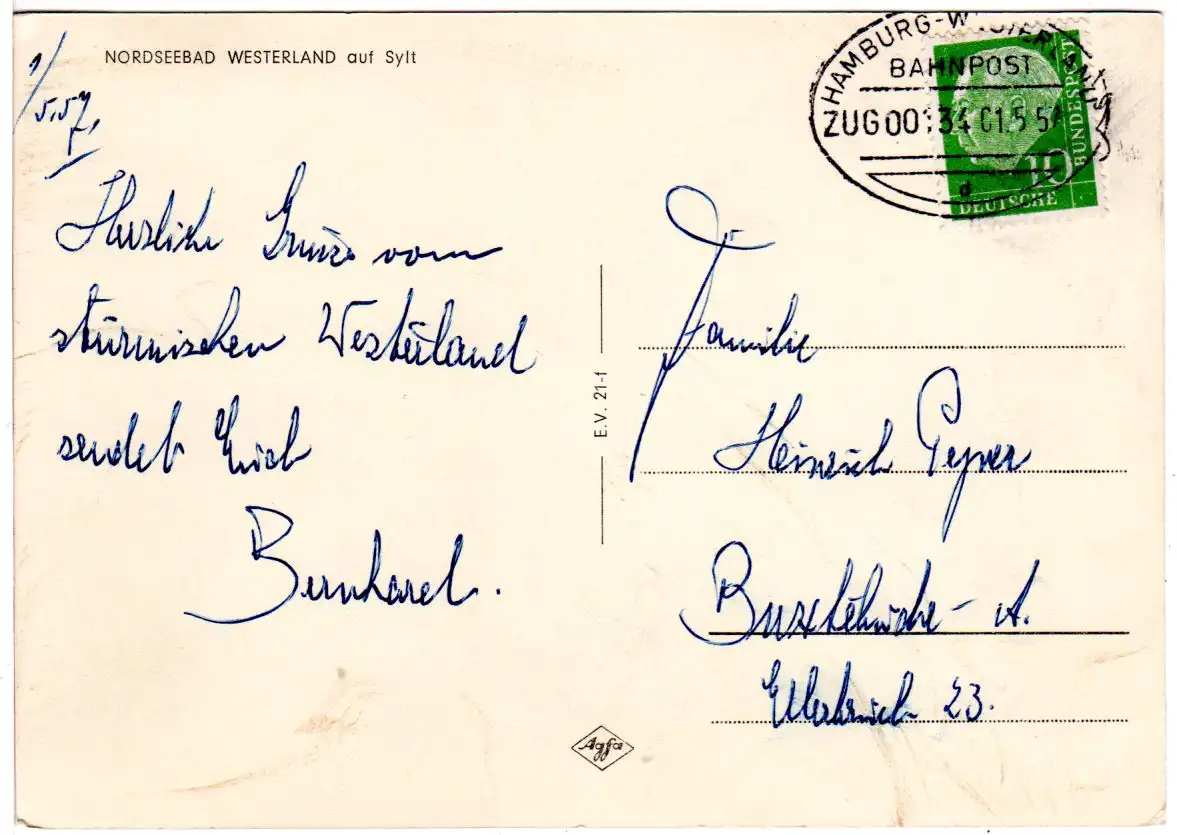 NORDSEEBAD WESTERLAND auf Sylt
1/
5.57.
Herzliche Grüße vom
stürmischen Westerland
sendet Erich
Bernhard.
E.V. 21-f
HAMBURG-WESTERLAND
BAHNPOST
ZUG00134 01.5 57
d
10
DEUTSCHE
BUNDESPOST
Familie
Heinrich Peper
Buxtehude - A.
Ellerbruch 23.
Agfa